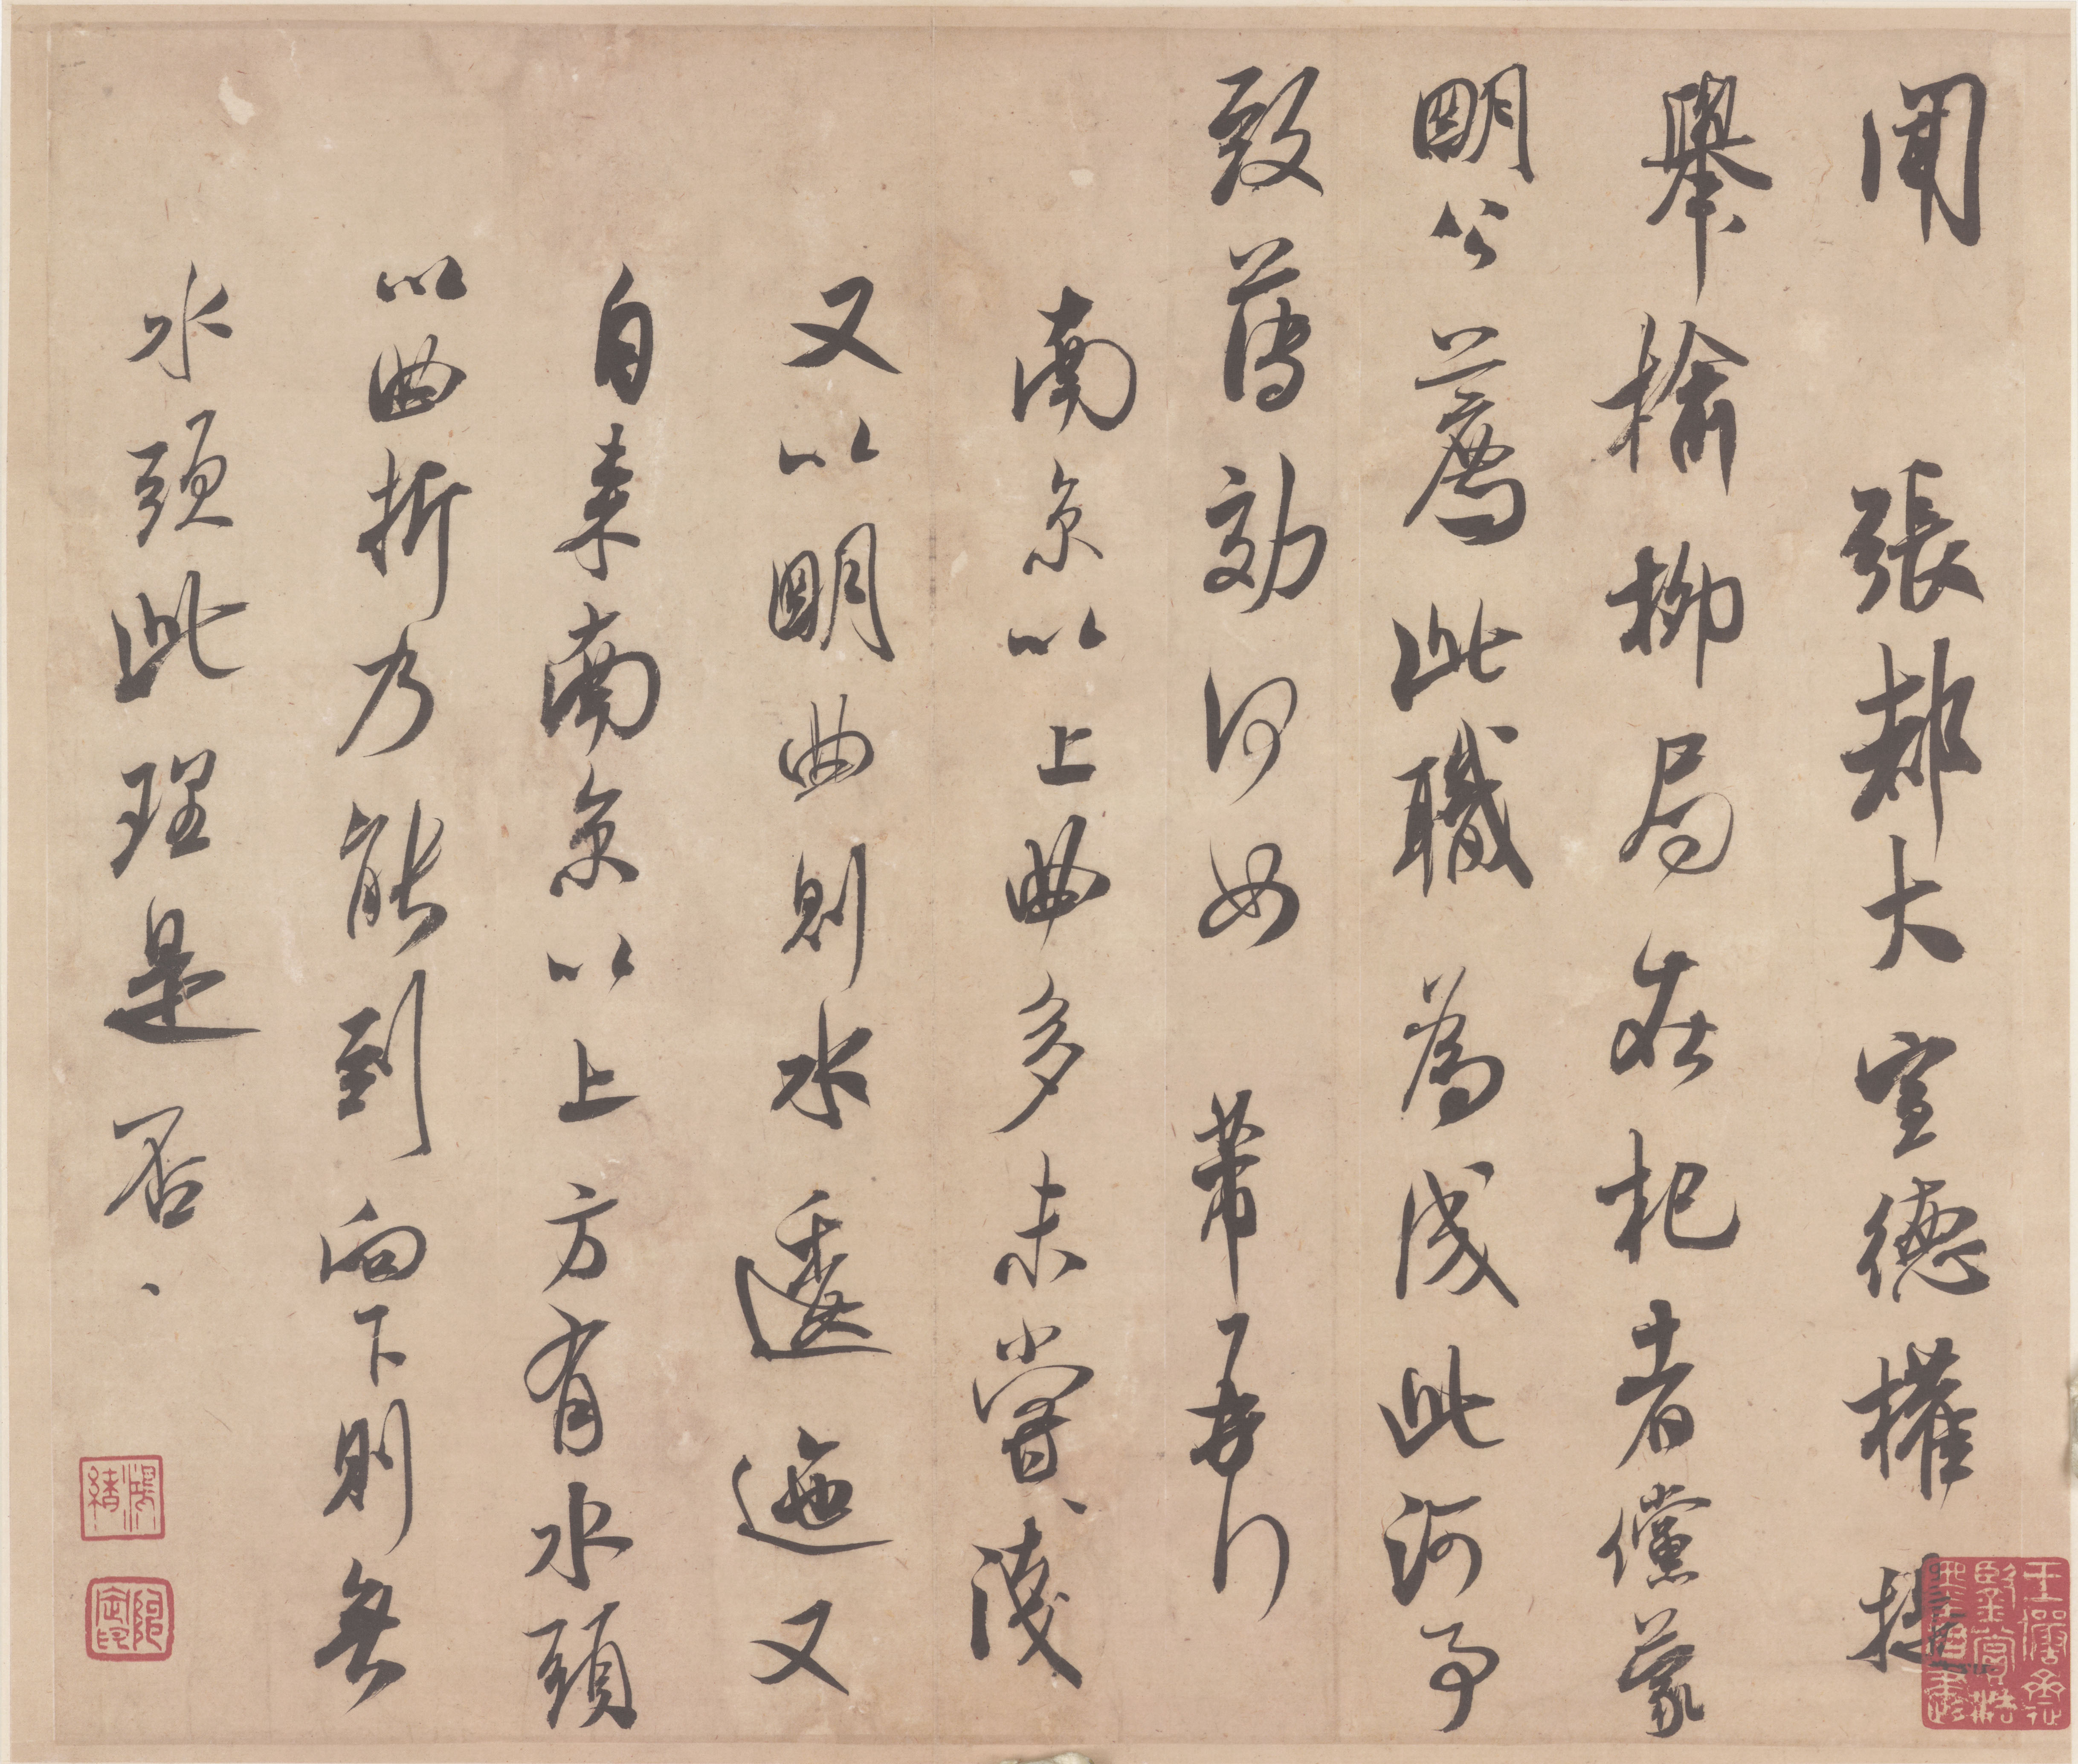 聞張都大宣德權提
舉榆柳局在杞者儻蒙
明公薦此職為成此河事
致薄効何如芾再行
南京以上曲多未嘗淺
又以明曲則水逶迤又
自來南京以上方有水頭
以曲折乃能到向下則無
水頭此理是否